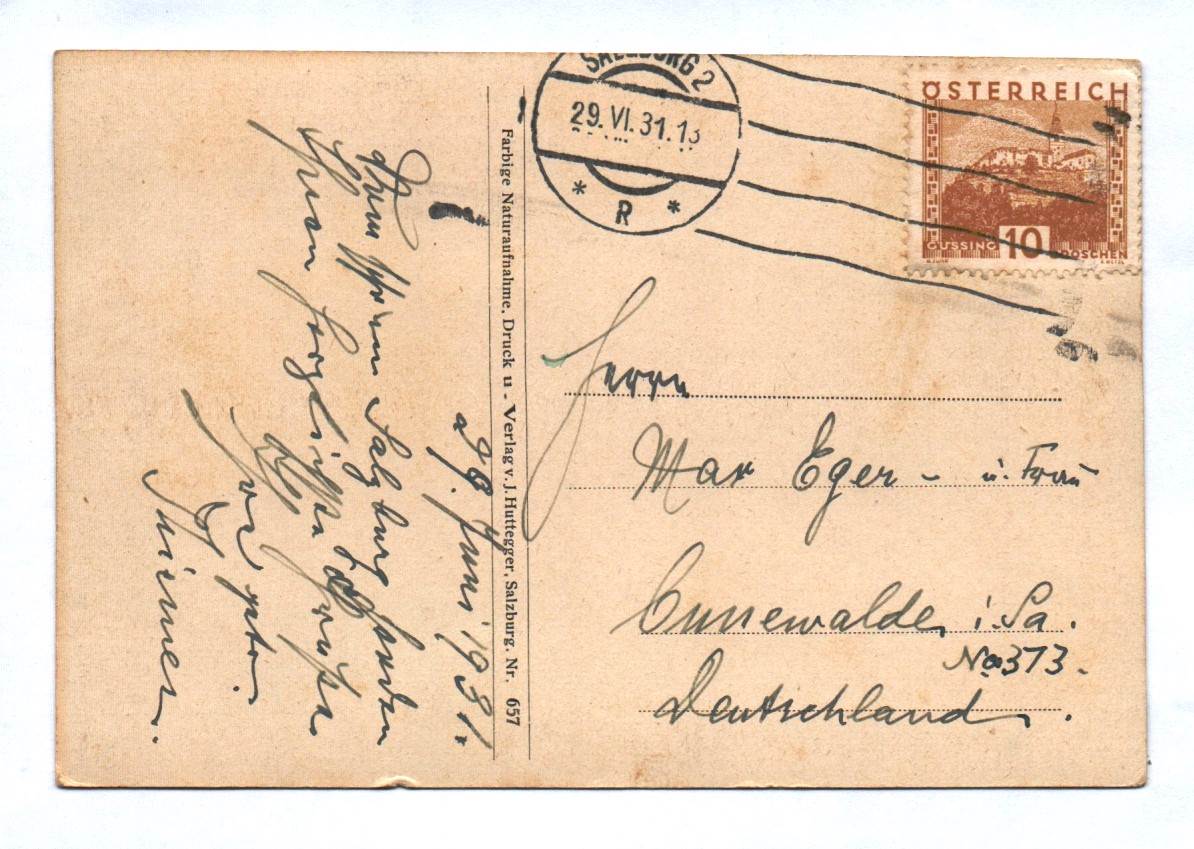 SALZBURG 2
29. VI. 31. 13
* R *
ÖSTERREICH
GÜSSING 10 GROSCHEN
Farbige Naturaufnahme, Druck u. Verlag v. J. Huttegger, Salzburg. Nr. 657
Herrn
Max Eger - u. Frau
Cunewalde i. Sa.
No 373.
Deutschland.
29. Juni 1931.
Salzburg senden
Ihnen herzlichste Grüße